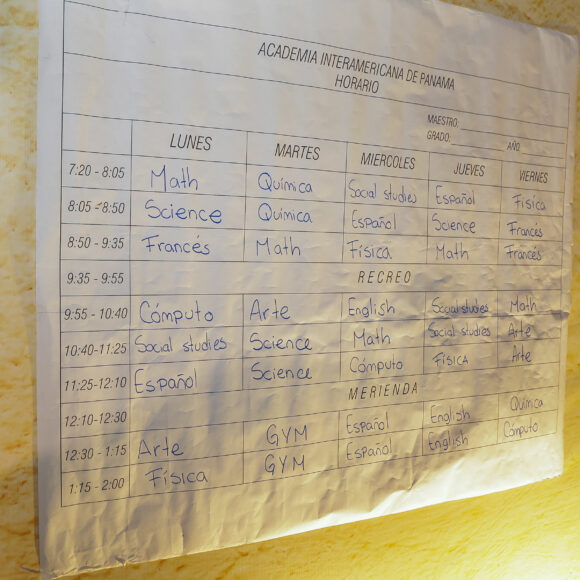 ACADEMIA INTERAMERICANA DE PANAMA
HORARIO
MAESTRO:
GRADO: AÑO
LUNES MARTES MIERCOLES JUEVES VIERNES
7:20 - 8:05 Math Química Social studies Español Física
8:05 - 8:50 Science Química Español Science Francés
8:50 - 9:35 Francés Math Física Math Francés
9:35 - 9:55 RECREO
9:55 - 10:40 Cómputo Arte English Social studies Math
10:40-11:25 Social studies Science Math Social studies Arte
11:25-12:10 Español Science Cómputo FÍSICA Arte
12:10-12:30 MERIENDA
12:30 - 1:15 Arte GYM Español English Química
1:15 - 2:00 Física GYM Español English Cómputo